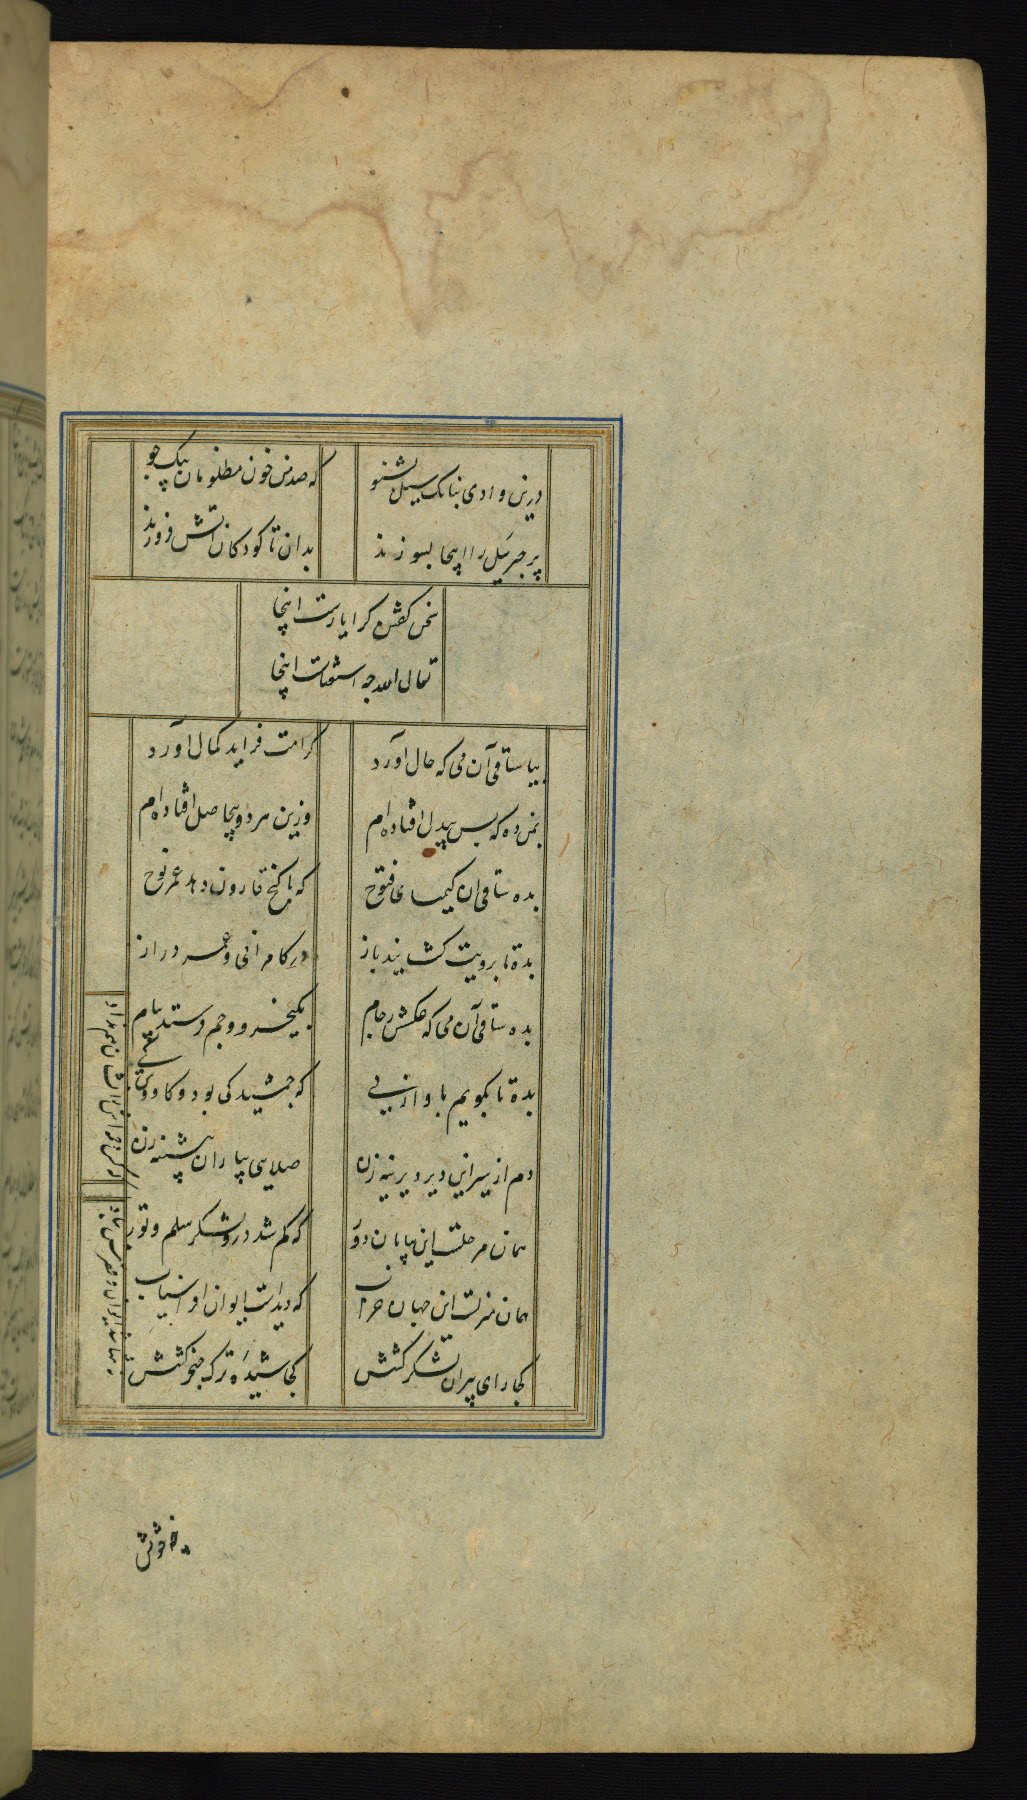 درین وادی ببانک سیل بشنو که صد من خون مظلومان بیک جو
پر جبریل را اینجا بسوزند بدان تا کودکان آتش فروزند
سخن کفتن کرا یارست اینجا
تعالی الله چه استغناست اینجا
بیا ساقی آن می که حال آورد کرامت فزاید کمال آورد
بمن ده که بس بیدل افتاده ام وزین هر دو بیحاصل افتاده ام
بده ساقی ان کیمیای فتوح که با کنج قارون دهد عمر نوح
بده تا برویت کشایند باز در کامرانی و عمر دراز
بده ساقی آن می که عکسش ز جام بکیخسرو و جم فرستد پیام
بده تا بکویم باواز نی که جمشید کی بود و کاوس کی
دم از سیر این دیر دیرینه زن صلایی بیاران پیشینه زن
همان مرحلست این بیابان دور که کم شد درو لشکر سلم و تور
همان منزلست این جهان خراب که دیدست ایوان افراسیاب
کجا رای پیران لشکر کشش کجا شیده ترک خنجر کشش
نه تنها شد ایوان و قصرش بباد
نه خوش